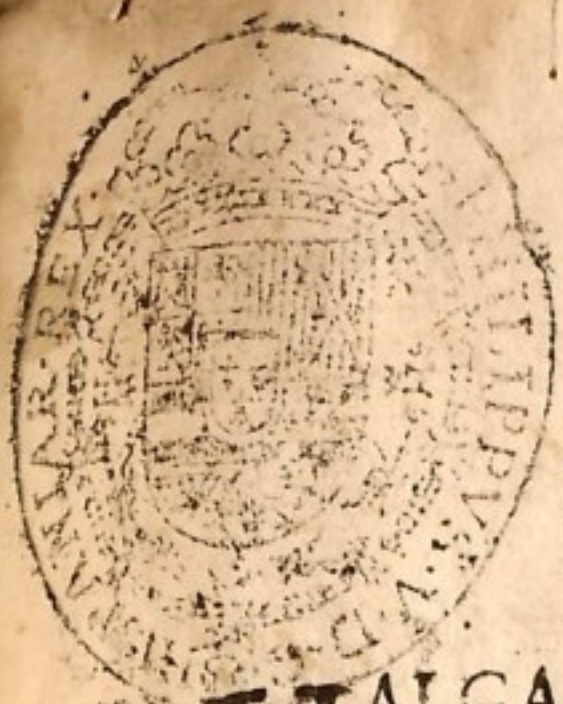 PHILIPPVS·V·D·G·HISPANIAR·REX·
ALGA